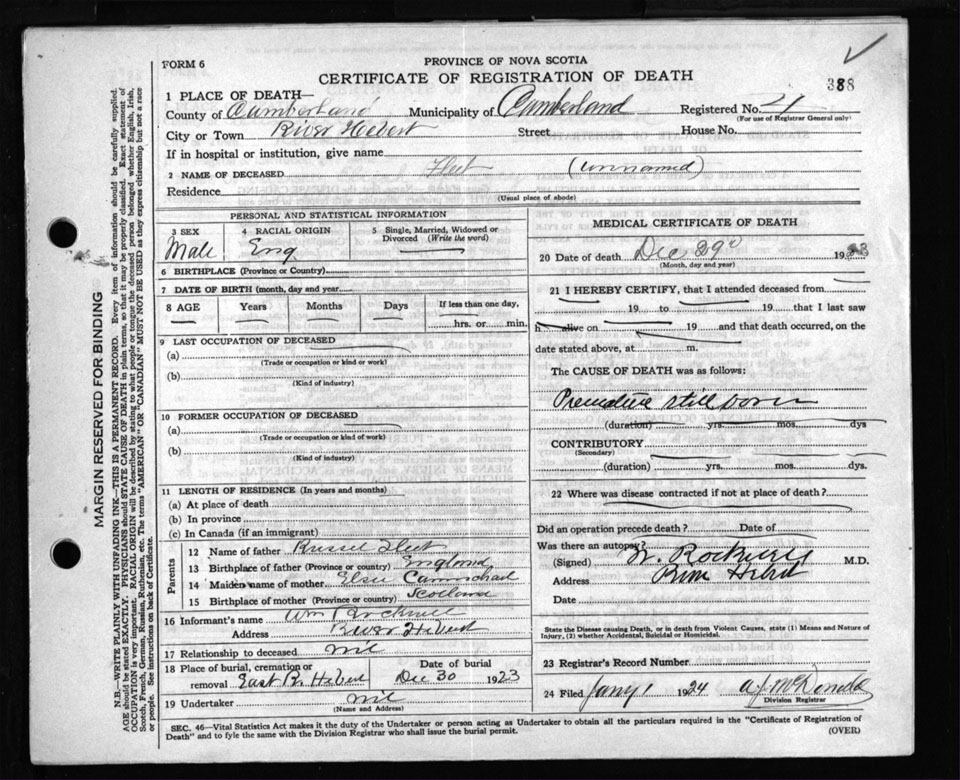 FORM 6
PROVINCE OF NOVA SCOTIA
CERTIFICATE OF REGISTRATION OF DEATH
388
1 PLACE OF DEATH—
County of Cumberland Municipality of Cumberland Registered No. 21
(For use of Registrar General only)
City or Town River Hebert Street House No.
If in hospital or institution, give name
2 NAME OF DECEASED Fleet (unnamed)
Residence
(Usual place of abode)
PERSONAL AND STATISTICAL INFORMATION
3 SEX Male
4 RACIAL ORIGIN Eng
5 Single, Married, Widowed or Divorced (Write the word)
6 BIRTHPLACE (Province or Country)
7 DATE OF BIRTH (month, day and year)
8 AGE Years Months Days If less than one day,
hrs. or min.
9 LAST OCCUPATION OF DECEASED
(a)
(Trade or occupation or kind or work)
(b)
(Kind of industry)
10 FORMER OCCUPATION OF DECEASED
(a)
(Trade or occupation or kind of work)
(b)
(Kind of industry)
11 LENGTH OF RESIDENCE (In years and months)
(a) At place of death
(b) In province
(c) In Canada (if an immigrant)
Parents
12 Name of father Russel Fleet
13 Birthplace of father (Province or country) England
14 Maiden name of mother Elsie
15 Birthplace of mother (Province or country) Scotland
16 Informant's name Wm Rockwell
Address River Hebert
17 Relationship to deceased nil
18 Place of burial, cremation or removal East R. Hebert
Date of burial Dec 30 1923
19 Undertaker nil
(Name and Address)
MEDICAL CERTIFICATE OF DEATH
20 Date of death Dec 29 1923
(Month, day and year)
21 I HEREBY CERTIFY, that I attended deceased from
19 to 19 that I last saw
h alive on 19 and that death occurred, on the
date stated above, at m.
The CAUSE OF DEATH was as follows:
Premature still born
(duration) yrs. mos. dys
CONTRIBUTORY
(Secondary)
(duration) yrs. mos. dys.
22 Where was disease contracted if not at place of death?
Did an operation precede death? Date of
Was there an autopsy?
(Signed) W. Rockwell M.D.
Address River Hebert
Date
State the Disease causing Death, or in death from Violent Causes, state (1) Means and Nature of
Injury, (2) whether Accidental, Suicidal or Homicidal.
23 Registrar's Record Number
24 Filed Jany 1 1924 A J McDonald
Division Registrar
SEC. 46—Vital Statistics Act makes it the duty of the Undertaker or person acting as Undertaker to obtain all the particulars required in the "Certificate of Registration of
Death" and to fyle the same with the Division Registrar who shall issue the burial permit.
(OVER)
MARGIN RESERVED FOR BINDING
N.B.—WRITE PLAINLY WITH UNFADING INK—THIS IS A PERMANENT RECORD. Every item of information should be carefully supplied.
AGE should be stated EXACTLY. PHYSICIANS should STATE CAUSE OF DEATH in plain terms, so that it may be properly classified. Exact statement of
OCCUPATION is very important. RACIAL ORIGIN will be described by stating to what people or tongue the deceased person belonged whether English, Irish,
Scotch, French, German, Russian, Ruthenian, etc. The terms "AMERICAN" OR "CANADIAN" MUST NOT BE USED as they express citizenship but not a race
or people. See instructions on back of Certificate.